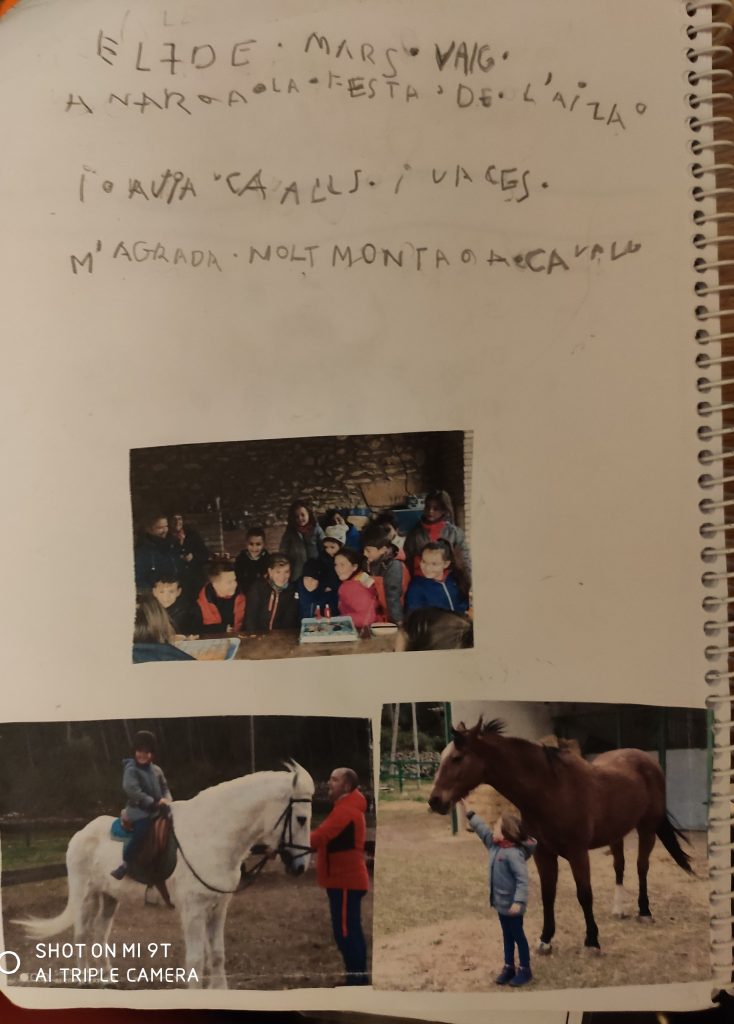 EL 7 DE · MARS · VAIG ·
ANAR · A · LA · FESTA · DE · L'AIZA
I · AVIA · CAVALLS · I VACES ·
M'AGRADA · NOLT MONTA · A · CAVALL
SHOT ON MI 9T
AI TRIPLE CAMERA